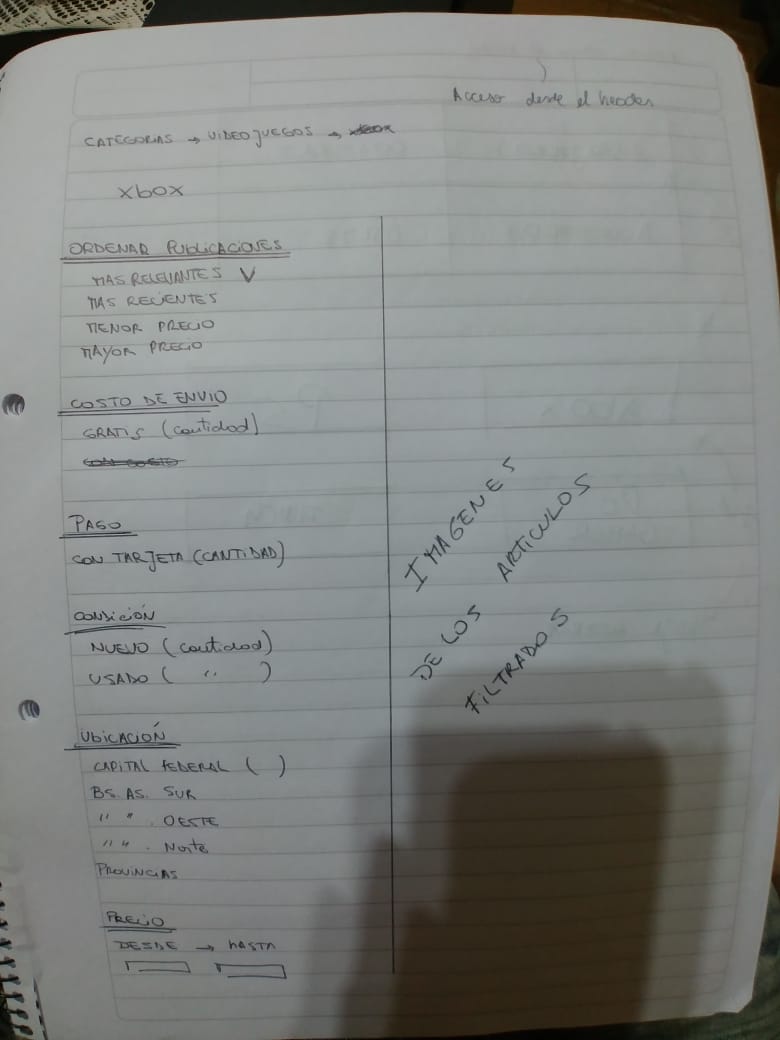 Acceso desde el header
CATEGORIAS → VIDEOJUEGOS →
xbox
ORDENAR PUBLICACIONES
MAS RELEVANTES V
MAS RECIENTES
MENOR PRECIO
MAYOR PRECIO
COSTO DE ENVIO
GRATIS (cantidad)
CON COSTO
PAGO
CON TARJETA (CANTIDAD)
CONDICIÓN
NUEVO (cantidad)
USADO ( " )
UBICACIÓN
CAPITAL FEDERAL ( )
BS. AS. SUR
" " . OESTE
" " . Norte
PROVINCIAS
PRECIO
DESDE → HASTA
IMAGENES
DE LOS ARTICULOS
FILTRADOS